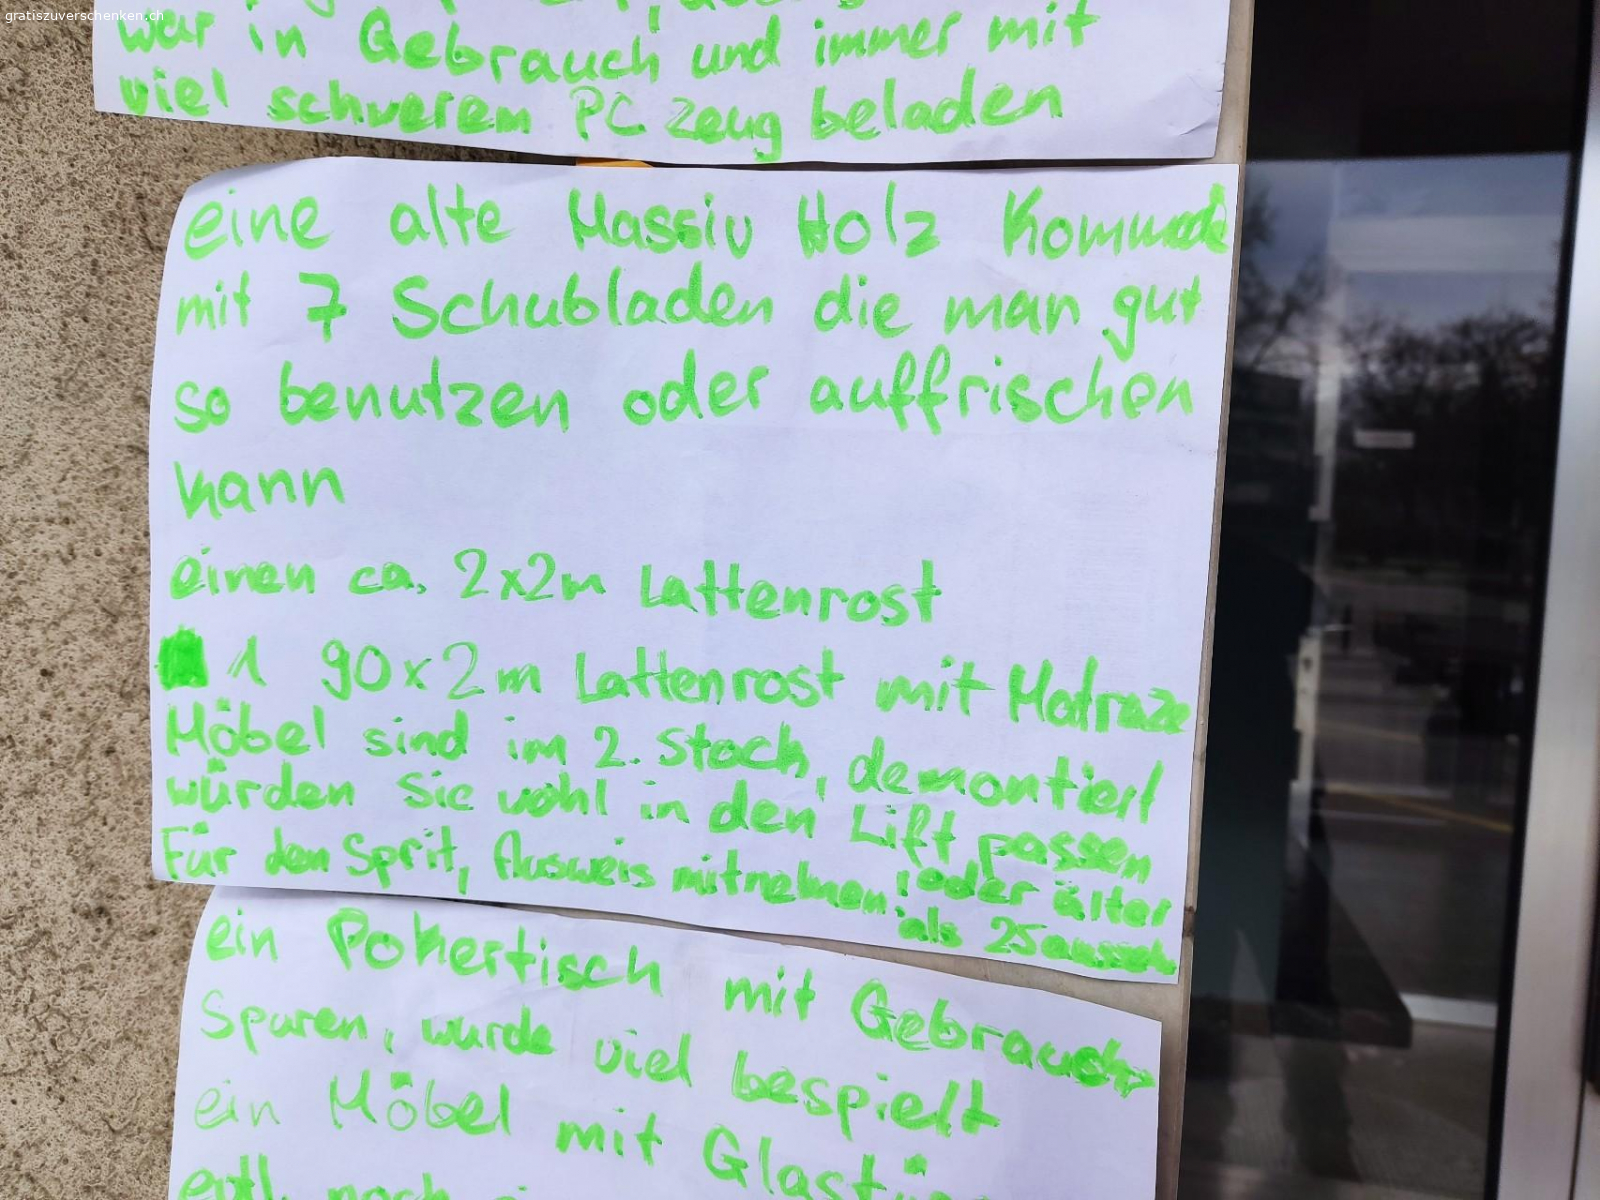 gratiszuverschenken.ch
war in Gebrauch und immer mit
viel schwerem PC zeug beladen
eine alte Massiv Holz Kommode
mit 7 Schubladen die man gut
so benutzen oder auffrischen
kann
einen ca. 2x2m Lattenrost
1 90x2m Lattenrost mit Matraze
Möbel sind im 2. Stock, demontiert
würden sie wohl in den Lift passen
Für den Sprit, Ausweis mitnehmen! oder älter
als 25 ausseh
ein Pokertisch mit Gebrauch
Spuren, wurde viel bespielt
ein Möbel mit
evtl. noch